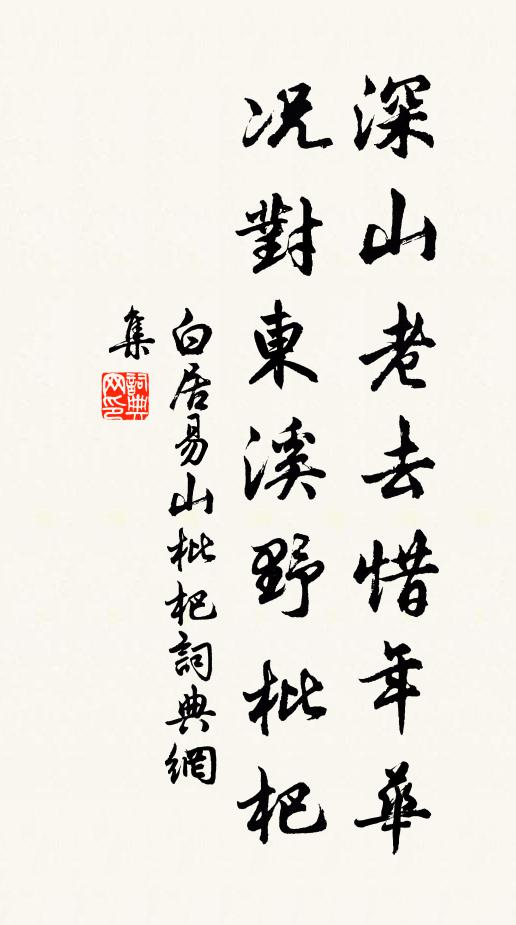 深山老去惜年華
况對東溪野枇杷
白居易山枇杷詞典網
集
詞典
网印